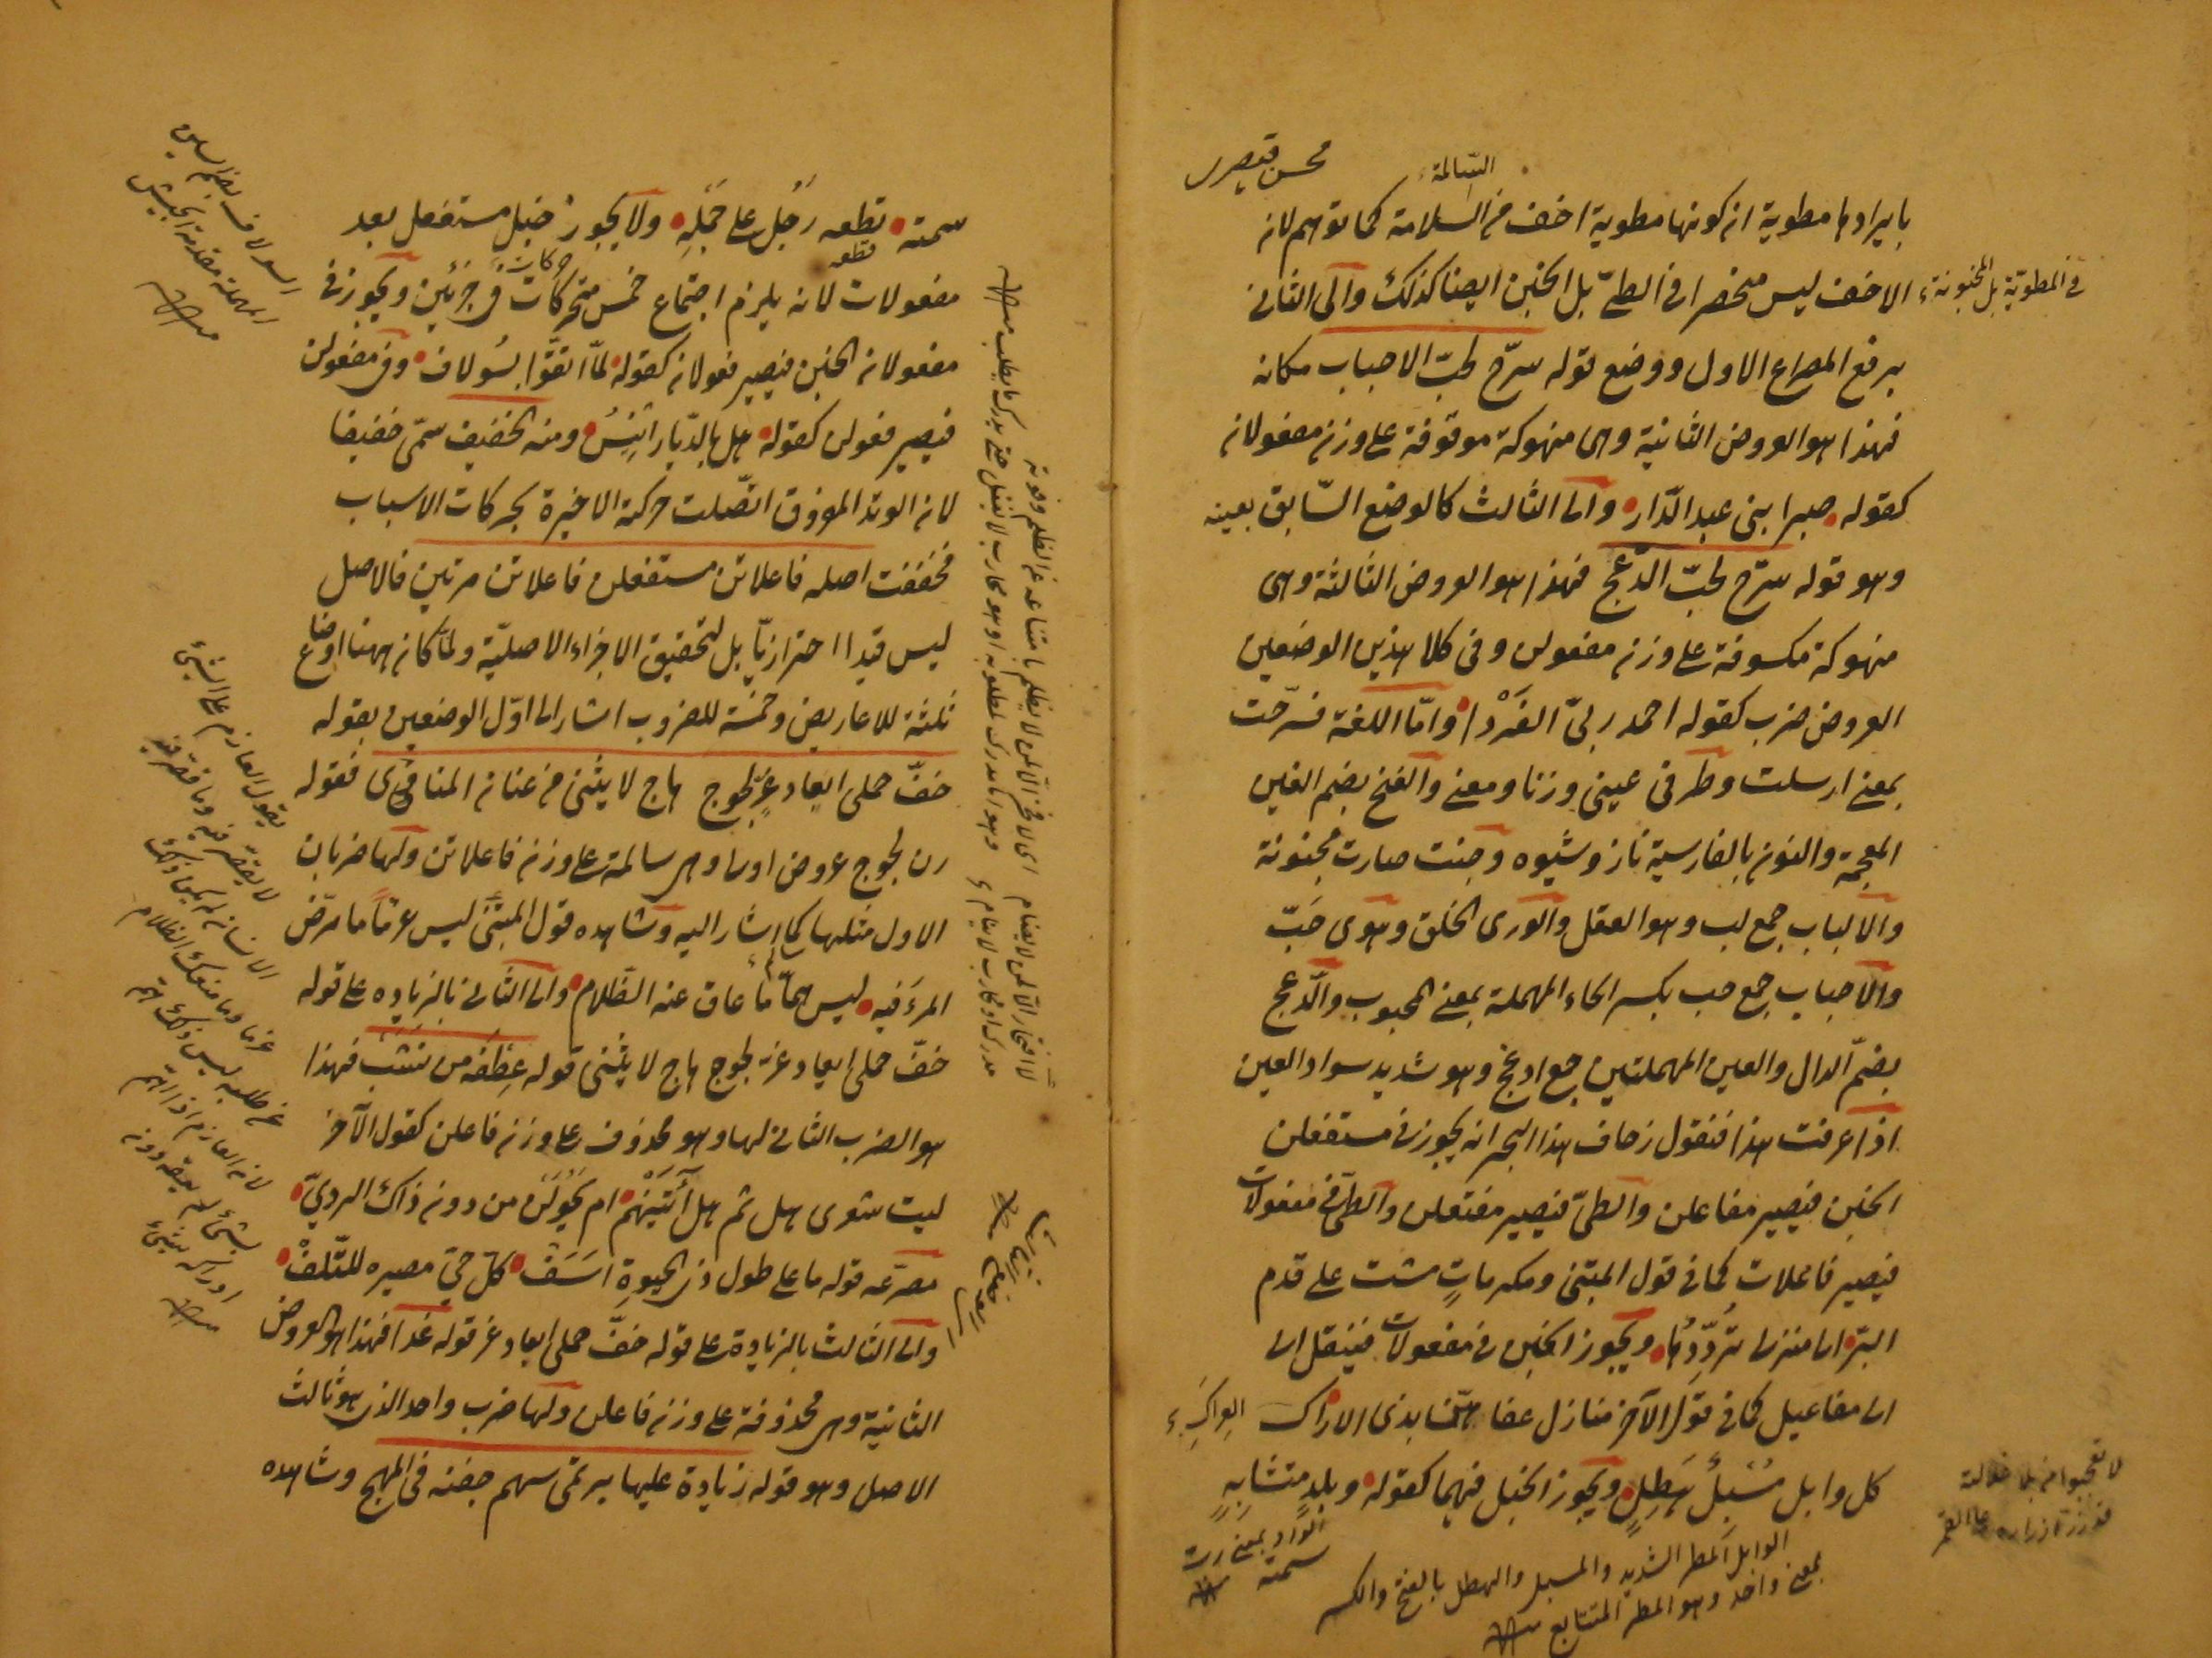 محسن قيصرى
السّالمة
بايرادها مطوية ان كونها مطوية اخف من السلامة كما توهم لانه
الاخف ليس منحصرا فى الطىّ بل الخبن ايضا كذلك والى الثانى
فى المطويّة بل المخبونة
برفع المصراع الاول ووضع قوله سرّح لحبّ الاحباب مكانه
فهذا هو العروض الثانية وهى منهوكة موقوفة على وزن مفعولان
كقوله صبرا بنى عبد الدّار والى الثالث كالوضع السّابق بعينه
وهو قوله سرّح لحبّ الدّعج فهذا هو العروض الثالثة وهى
منهوكة مكسوفة على وزن مفعولن وفى كلا هذين الوضعين
العروض ضرب كقوله احمد ربىّ الفَرْدا وامّا اللغة فسرّحت
بمعنى ارسلت وطرفى عينى وزنا ومعنى والغنج بضم الغين
المعجمة والنون بالفارسية ناز وشيوه وجنت صارت مجنونة
والالباب جمع لب وهو العقل والورى الخلق وهوى حَبّ
والاحباب جمع حب بكسر الحاء المهملة بمعنى المحبوب والدّعج
بضمّ الدال والعين المهملتين جمع ادعج وهو شديد سواد العين
اذا عرفت هذا فنقول زحاف هذا البحر انه يجوز فى مستفعلن
الخبن فيصير مفاعلن والطىّ فيصير مفتعلن والطىّ فى مفعولات
فيصير فاعلات كما فى قول المتنبى ومكرماتٍ مشت على قدم
البرّ الى منزلى تُردّدُها ويجوز الخبن فى مفعولات فينقل الى
الى مفاعيل كما فى قول الآخر منازل عفاهنّ بذى الاراك
كل وابل مُسْبِلٌ هَطِلٍ ويجوز الخبل فيهما كقوله وبلدٍ متشابهٍ
الواو بمعنى رب
سمته
الوابل المطر الشديد والمسبل والهطل بالفتح والكسر
بمعنى واحد وهو المطر المتتابع
لا تعجبوا من بلا غلالته
قد زرّ ازراره على القمر
سمته قطعه رَجُل على جَمَلِهِ ولا يجوز خبل مستفعل بعد
قطعه
حركات
مفعولات لانه يلزم اجتماع خمس متحركات فى جزئين ويجوز فى
مفعولان الخبن فيصير فعولان كقوله لمّا التقَوَّا بسُولاف وفى مفعولن
فيصير فعولن كقوله هل بالدّيار انيسُ ومنه الخفيف سمّى خفيفا
لان الوتد المفروق اتّصلت حركته الاخيرة بحركات الاسباب
فخففت اصله فاعلاتن مستفعلن فاعلاتن مرتين فالاصل
ليس قيدا احترازيّا بل لتحقيق الاجزاء الاصليّة ولمّا كان ههنا اوضاع
ثلثة للاعاريض وخمسة للضروب اشار الى اوّل الوضعين بقوله
خفّ حملى ابعاد غرٍّ لجوج هاج لا يثنى من عنان المنافى فقوله
رن لجوج عروض اولى وهى سالمة على وزن فاعلاتن ولها ضربان
الاول مثلها كما اشار اليه وشاهده قول المتنبّى ليس عزمًا ما مرّض
المرءُ فيه ليس همّا ما عاق عنه الظّلام والى الثانى بالزياده على قوله
خفّ حملى ابعاد غرّ لجوج هاج لا يثنى قوله عِطْفَه من نَشَبْ فهذا
هو الضرب الثانى لها وهو محذوف على وزن فاعلن كقول الآخر
ليت شعرى هل ثم هل آتيَنْهُم ام يَحُولَنْ من دون ذاك الردىّ
مصرّعه قوله ما على طول ذى الحيوة اسَفْ كلّ حىّ مصيره للتّلفْ
والى الثالث بالزيادة على قوله خفّ حملى ابعاد غر قوله غدا فهذا هو العروض
الثانية وهى محذوفة على وزن فاعلن ولها ضرب واحد الذى هو ثالث
الاصل وهو قوله زيادة عليها يرتمى سهم جفنه فى المهج وشاهده
السولاف بضم السين
المهملة مقدمة الجيش
يقول العازم على الشئ
لا يقصّر فيه وما قصّر فيه
الانسان لم يكن ذلك
عزما وما منعك الظلام
عن طلبه ليس ذلك همّ
لان العازم اذا اهتم
بشئ لم يعقه دونه
ادراكه شئ